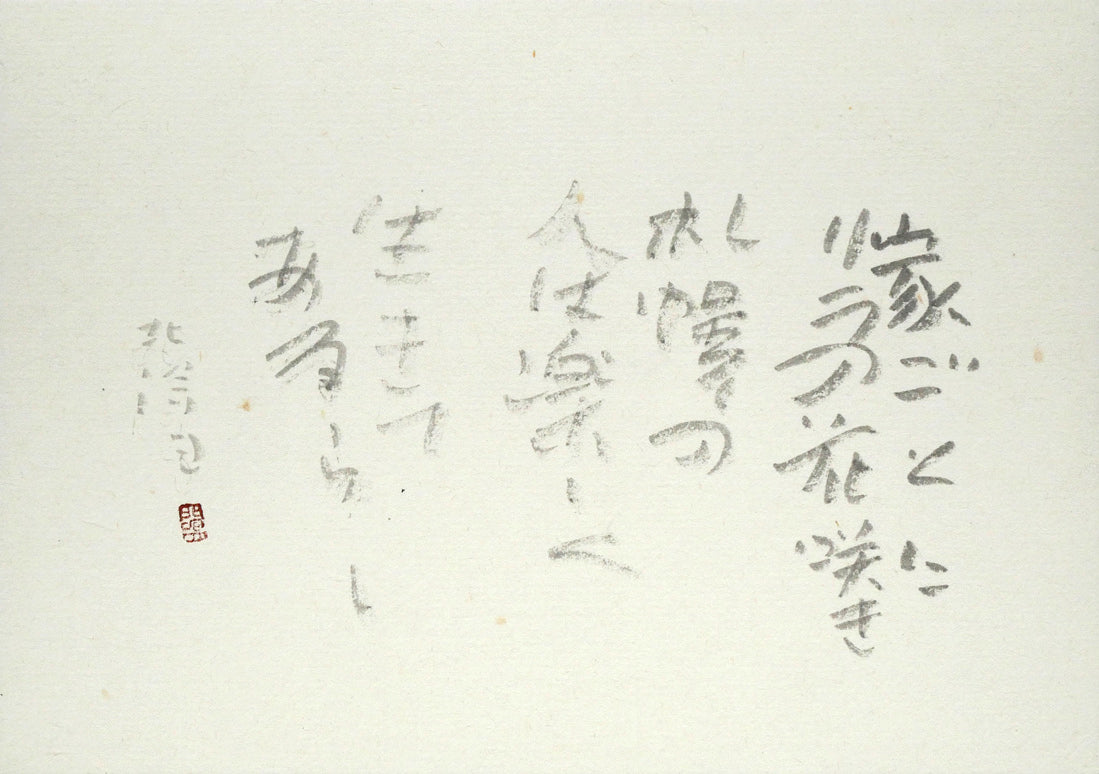 家ごとに
リラの花咲き
札幌の
人は楽しく
生きて
あるらし